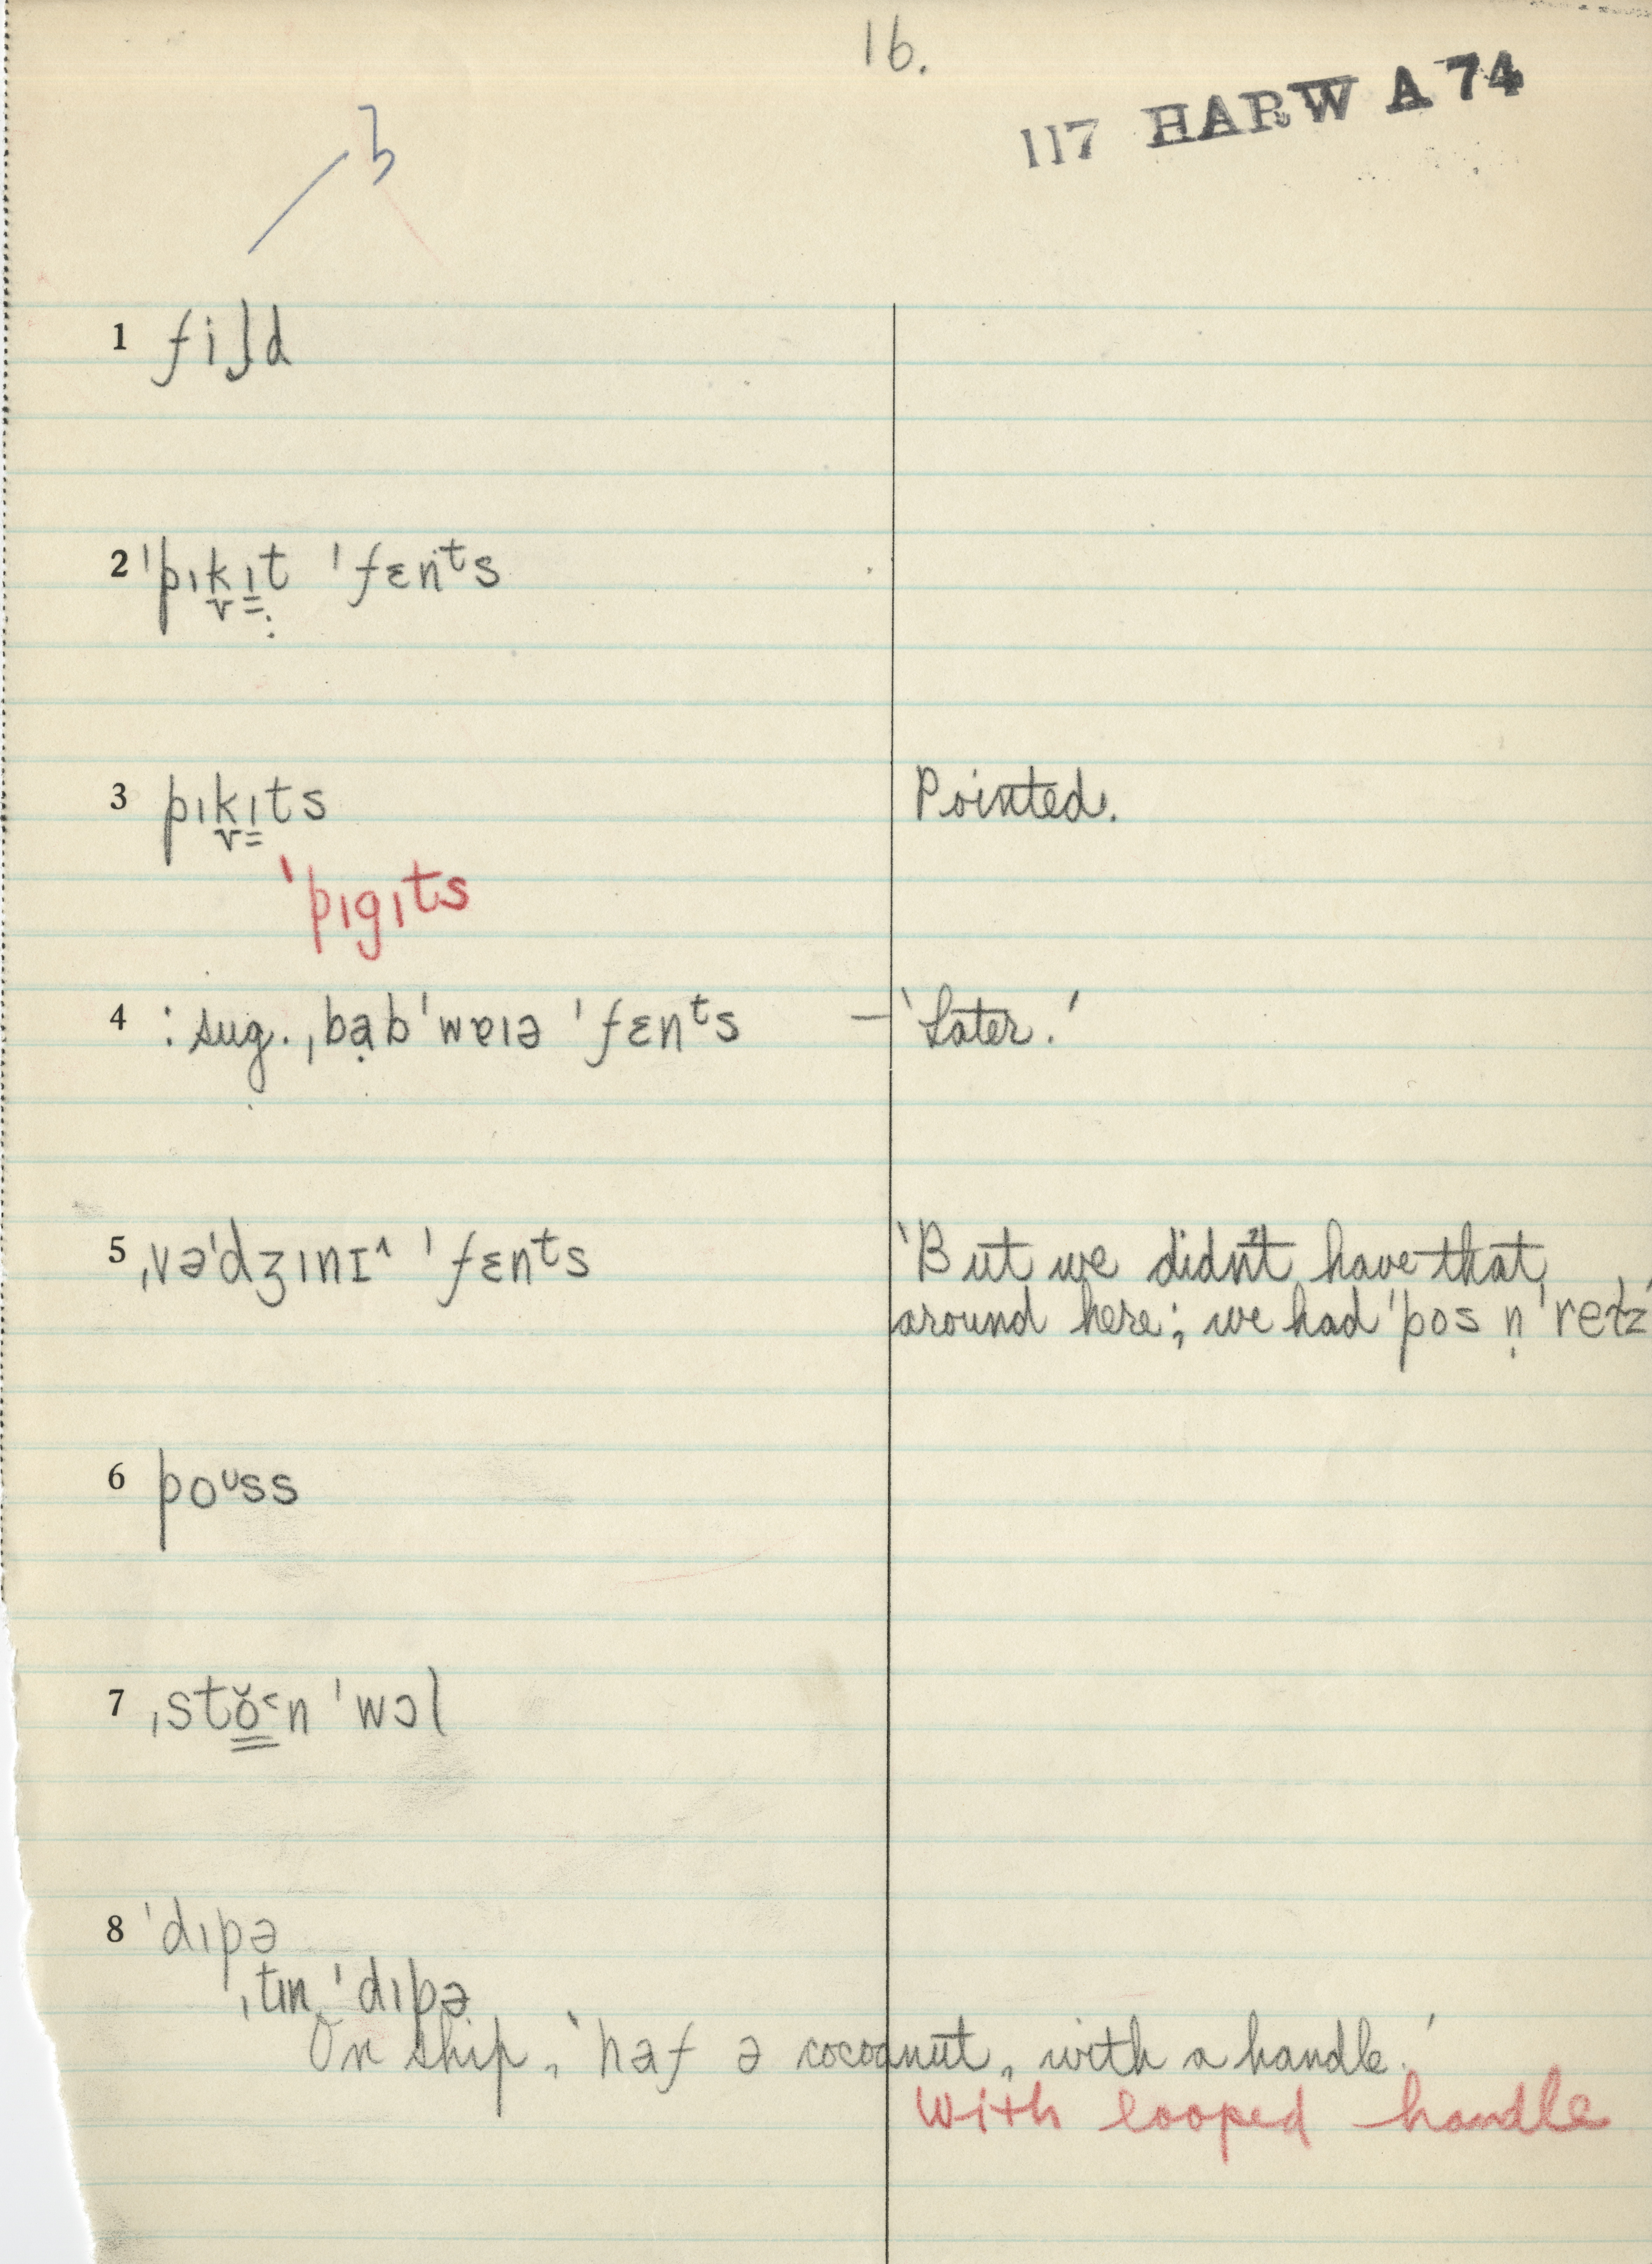 16.
117 HARW A 74
1 fiɫd
2 ˈpɪk̬ɪt ˈfɛnᵗs
3 pɪk̬ɪts Pointed.
ˈpɪgɪts
4 : sug. ˌbạbˈwɐɪə ˈfɛnᵗs – 'Later.'
5 ˌvəˈdʒɪnɪ^ ˈfɛnᵗs 'But we didn't have that
around here; we had ˈpos n̩ ˈreɪɫz'
6 poᶷss
7 ˌstŏ˂n ˈwɔl
8 ˈdɪpə
ˌtɪn ˈdɪpə
On ship, 'haf ə cocoanut, with a handle.'
With looped handle